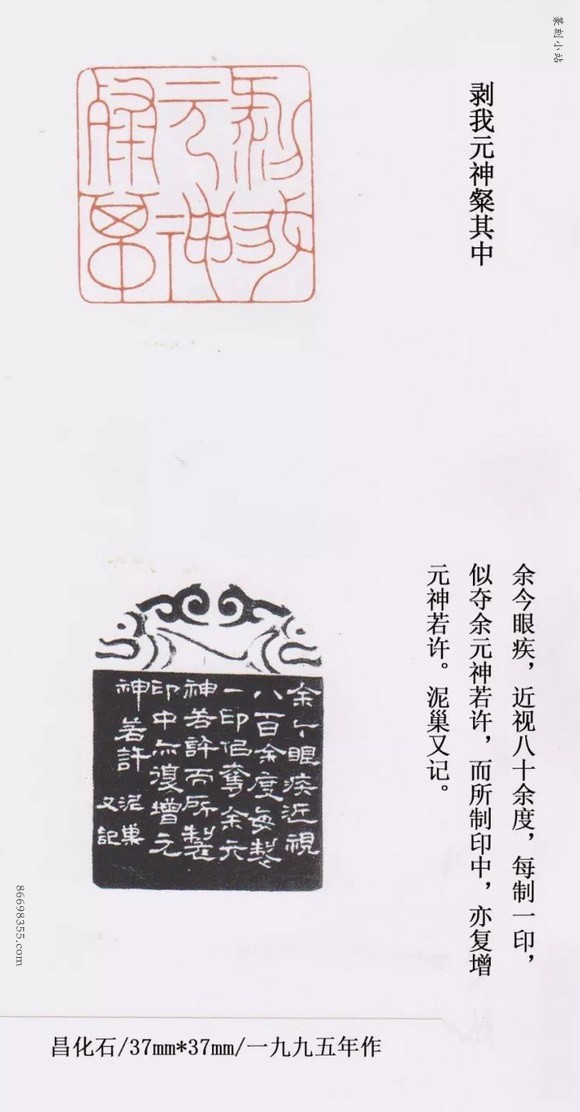 篆刻小站
剥我元神粲其中
剥我
元神
粲其中
余今眼疾，近视八十余度，每制一印，
似夺余元神若许，而所制印中，亦复增
元神若许。泥巢又记。
余今眼疾近视
八百余度每製
一印佀奪余元
神若許而所製
印中亦復增元
神若許 泥巢
又記
86698355.com
昌化石/37mm*37mm/一九九五年作